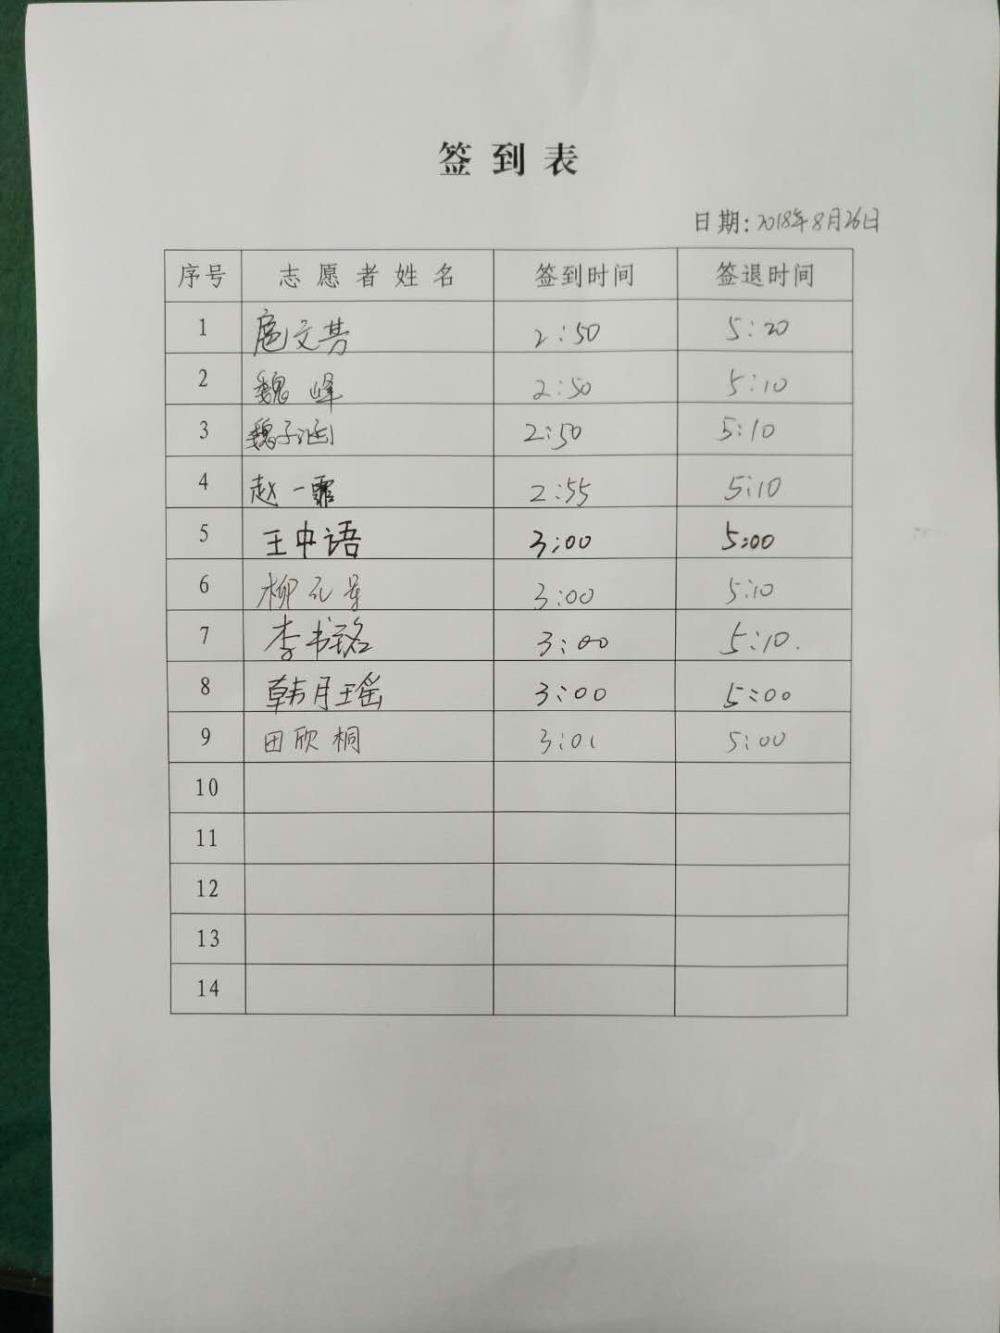 签到表
日期:2018年8月26日
序号 志愿者姓名 签到时间 签退时间
1 扈文芳 2:50 5:20
2 魏峰 2:50 5:10
3 魏子涵 2:50 5:10
4 赵一霏 2:55 5:10
5 王中语 3:00 5:00
6 柳 3:00 5:10
7 李书铭 3:00 5:10.
8 韩月瑶 3:00 5:00
9 田欣桐 3:01 5:00
10
11
12
13
14